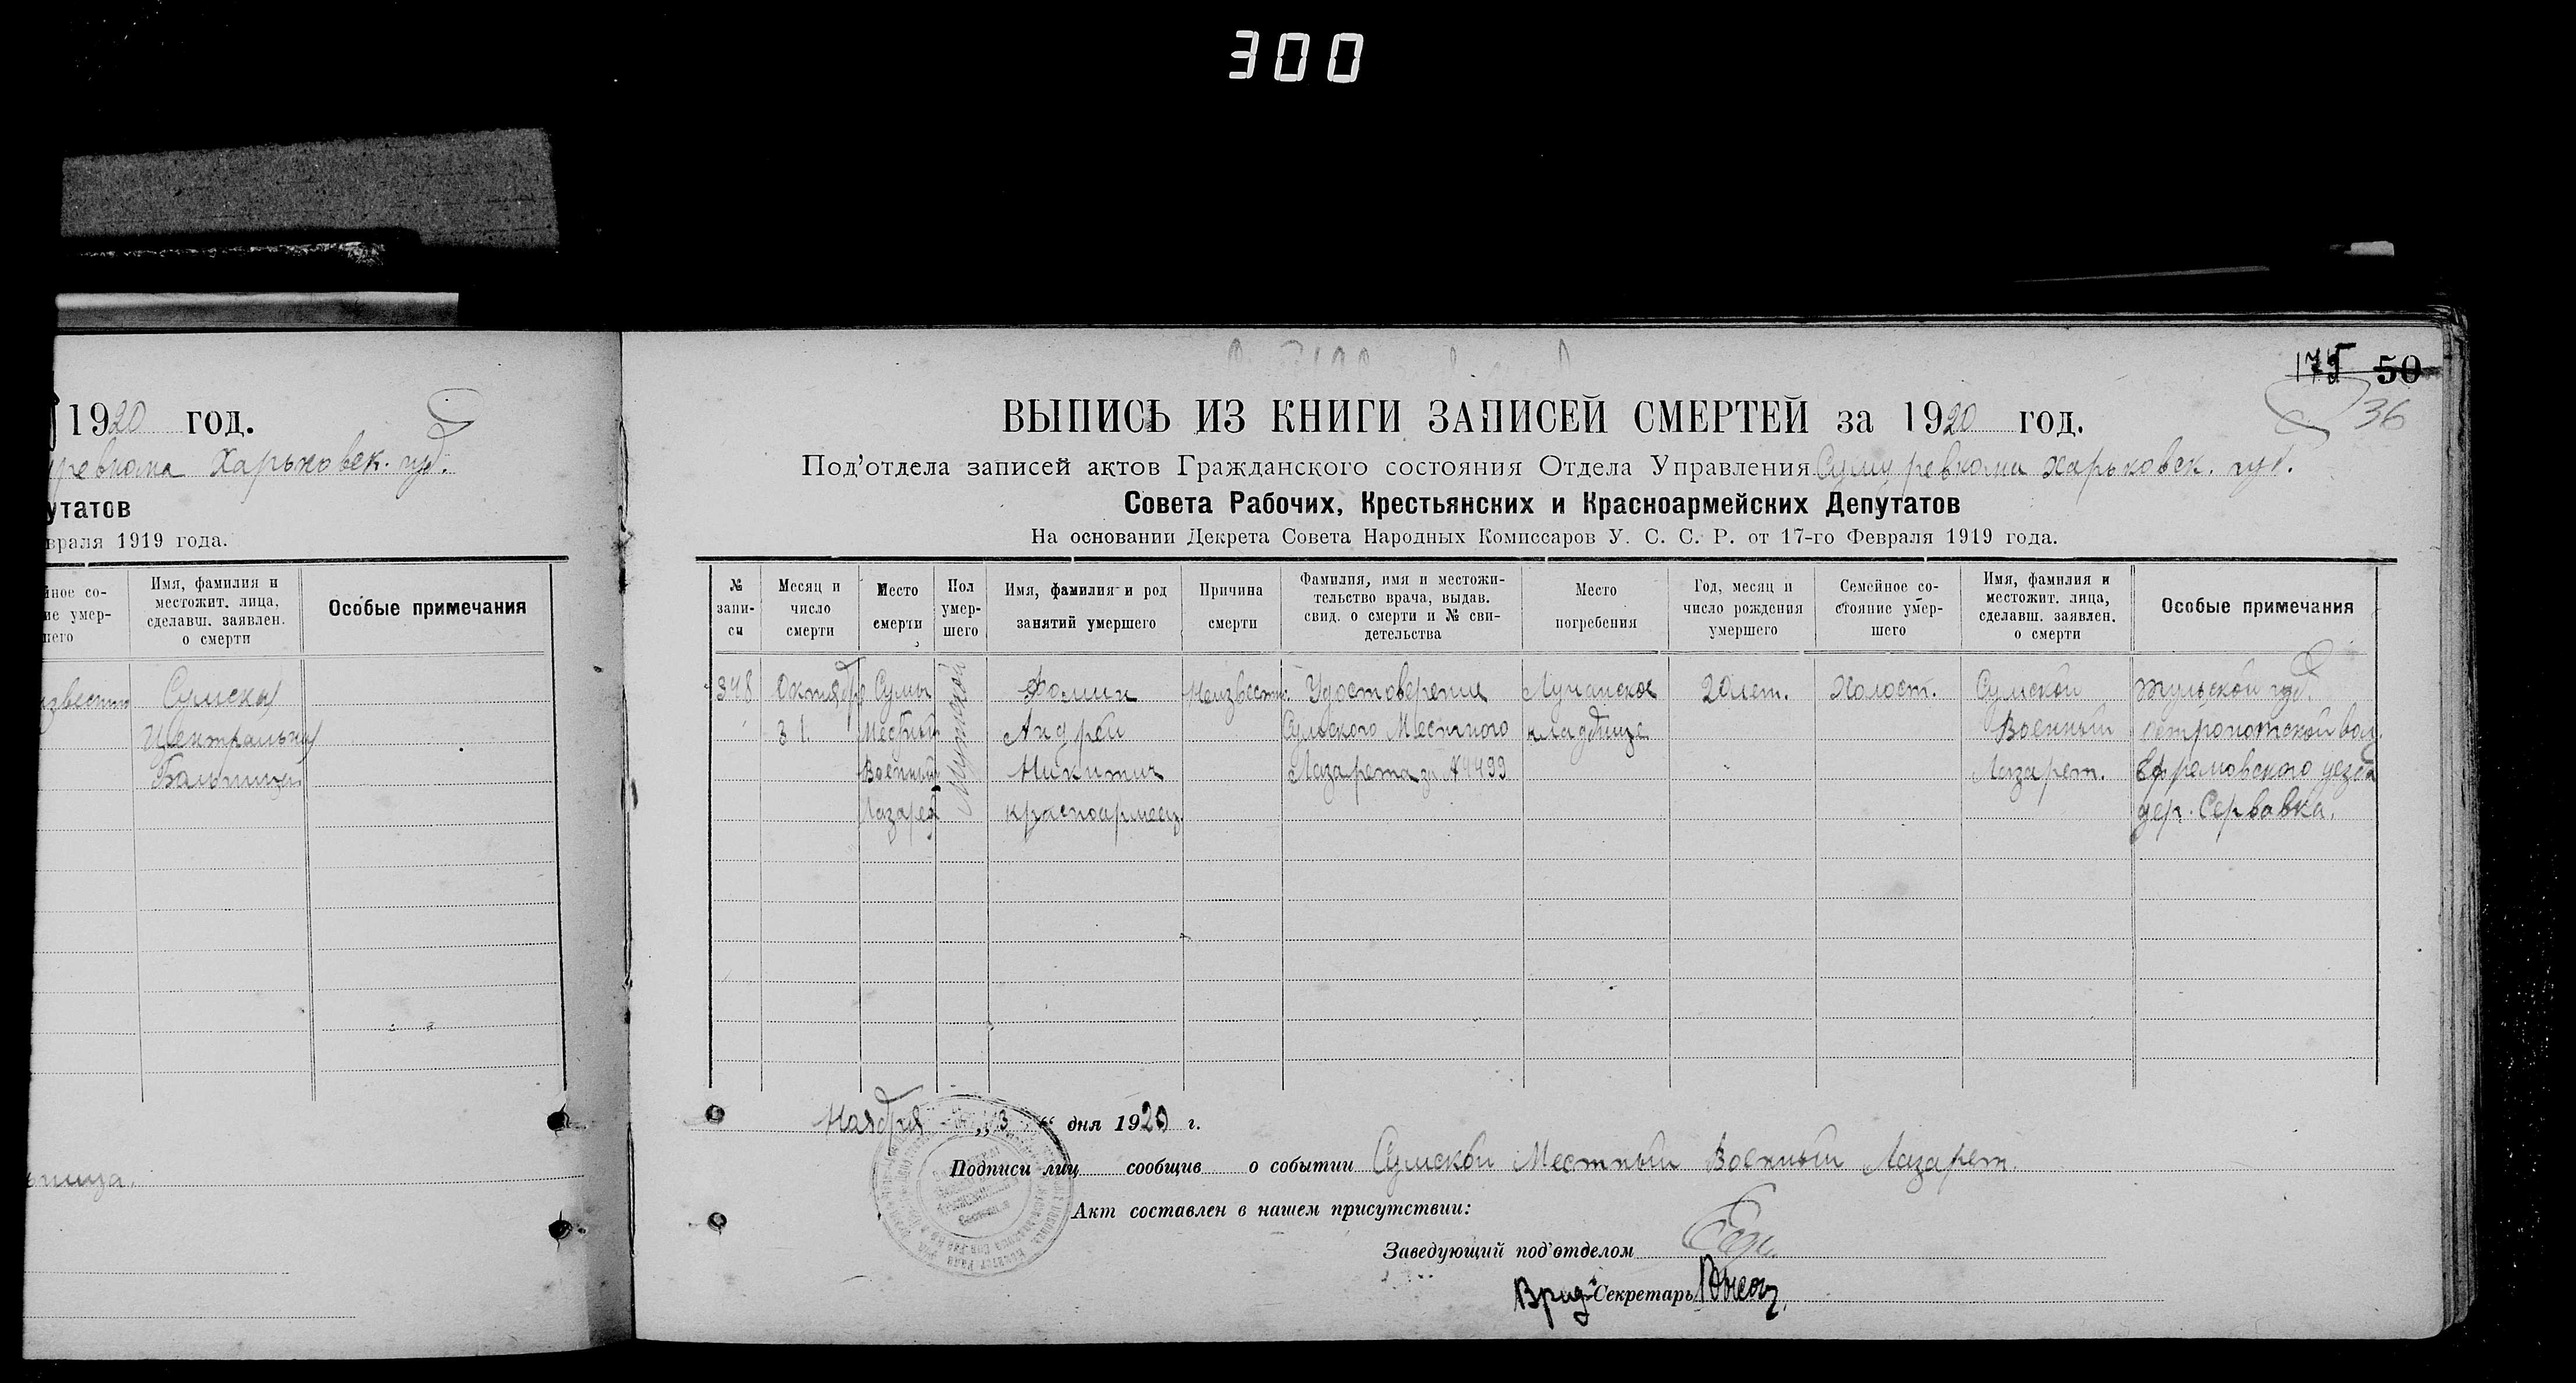 300
1920 год.
ревкома Харьковск. губ.
утатов
враля 1919 года.
Имя, фамилия и
местожит. лица,
сделавш. заявлен.
о смерти
Особые примечания
Сумская
Центральная
Больница
175 50
36
ВЫПИСЬ ИЗ КНИГИ ЗАПИСЕЙ СМЕРТЕЙ за 1920 год.
Под'отдела записей актов Гражданского состояния Отдела Управления Сумуревкома Харьковск. губ.
Совета Рабочих, Крестьянских и Красноармейских Депутатов
На основании Декрета Совета Народных Комиссаров У. С. С. Р. от 17-го Февраля 1919 года.
№ запи- си
Месяц и число смерти
Место смерти
Пол умер- шего
Имя, фамилия и род занятий умершего
Причина смерти
Фамилия, имя и местожи- тельство врача, выдав. свид. о смерти и № сви- детельства
Место погребения
Год, месяц и число рождения умершего
Семейное со- стояние умер- шего
Имя, фамилия и местожит. лица, сделавш. заявлен. о смерти
Особые примечания
348 Октября Сумы Мужской Фомин Неизвестн. Удостоверение Лучанское 20 лет. Холост. Сумской Тульской губ.
31. Местный Андрей Сумского Местного кладбище Военный вол  .
Военный Никитич Лазарета за № 4499 Лазарет. Ефремовского уезда
Лазарет красноармеец дер.
Ноября „3“ дня 1920 г.
Подписи лиц сообщив о событии Сумской Местный Военный Лазарет.
Акт составлен в нашем присутствии:
Заведующий под'отделом
Врид. Секретарь